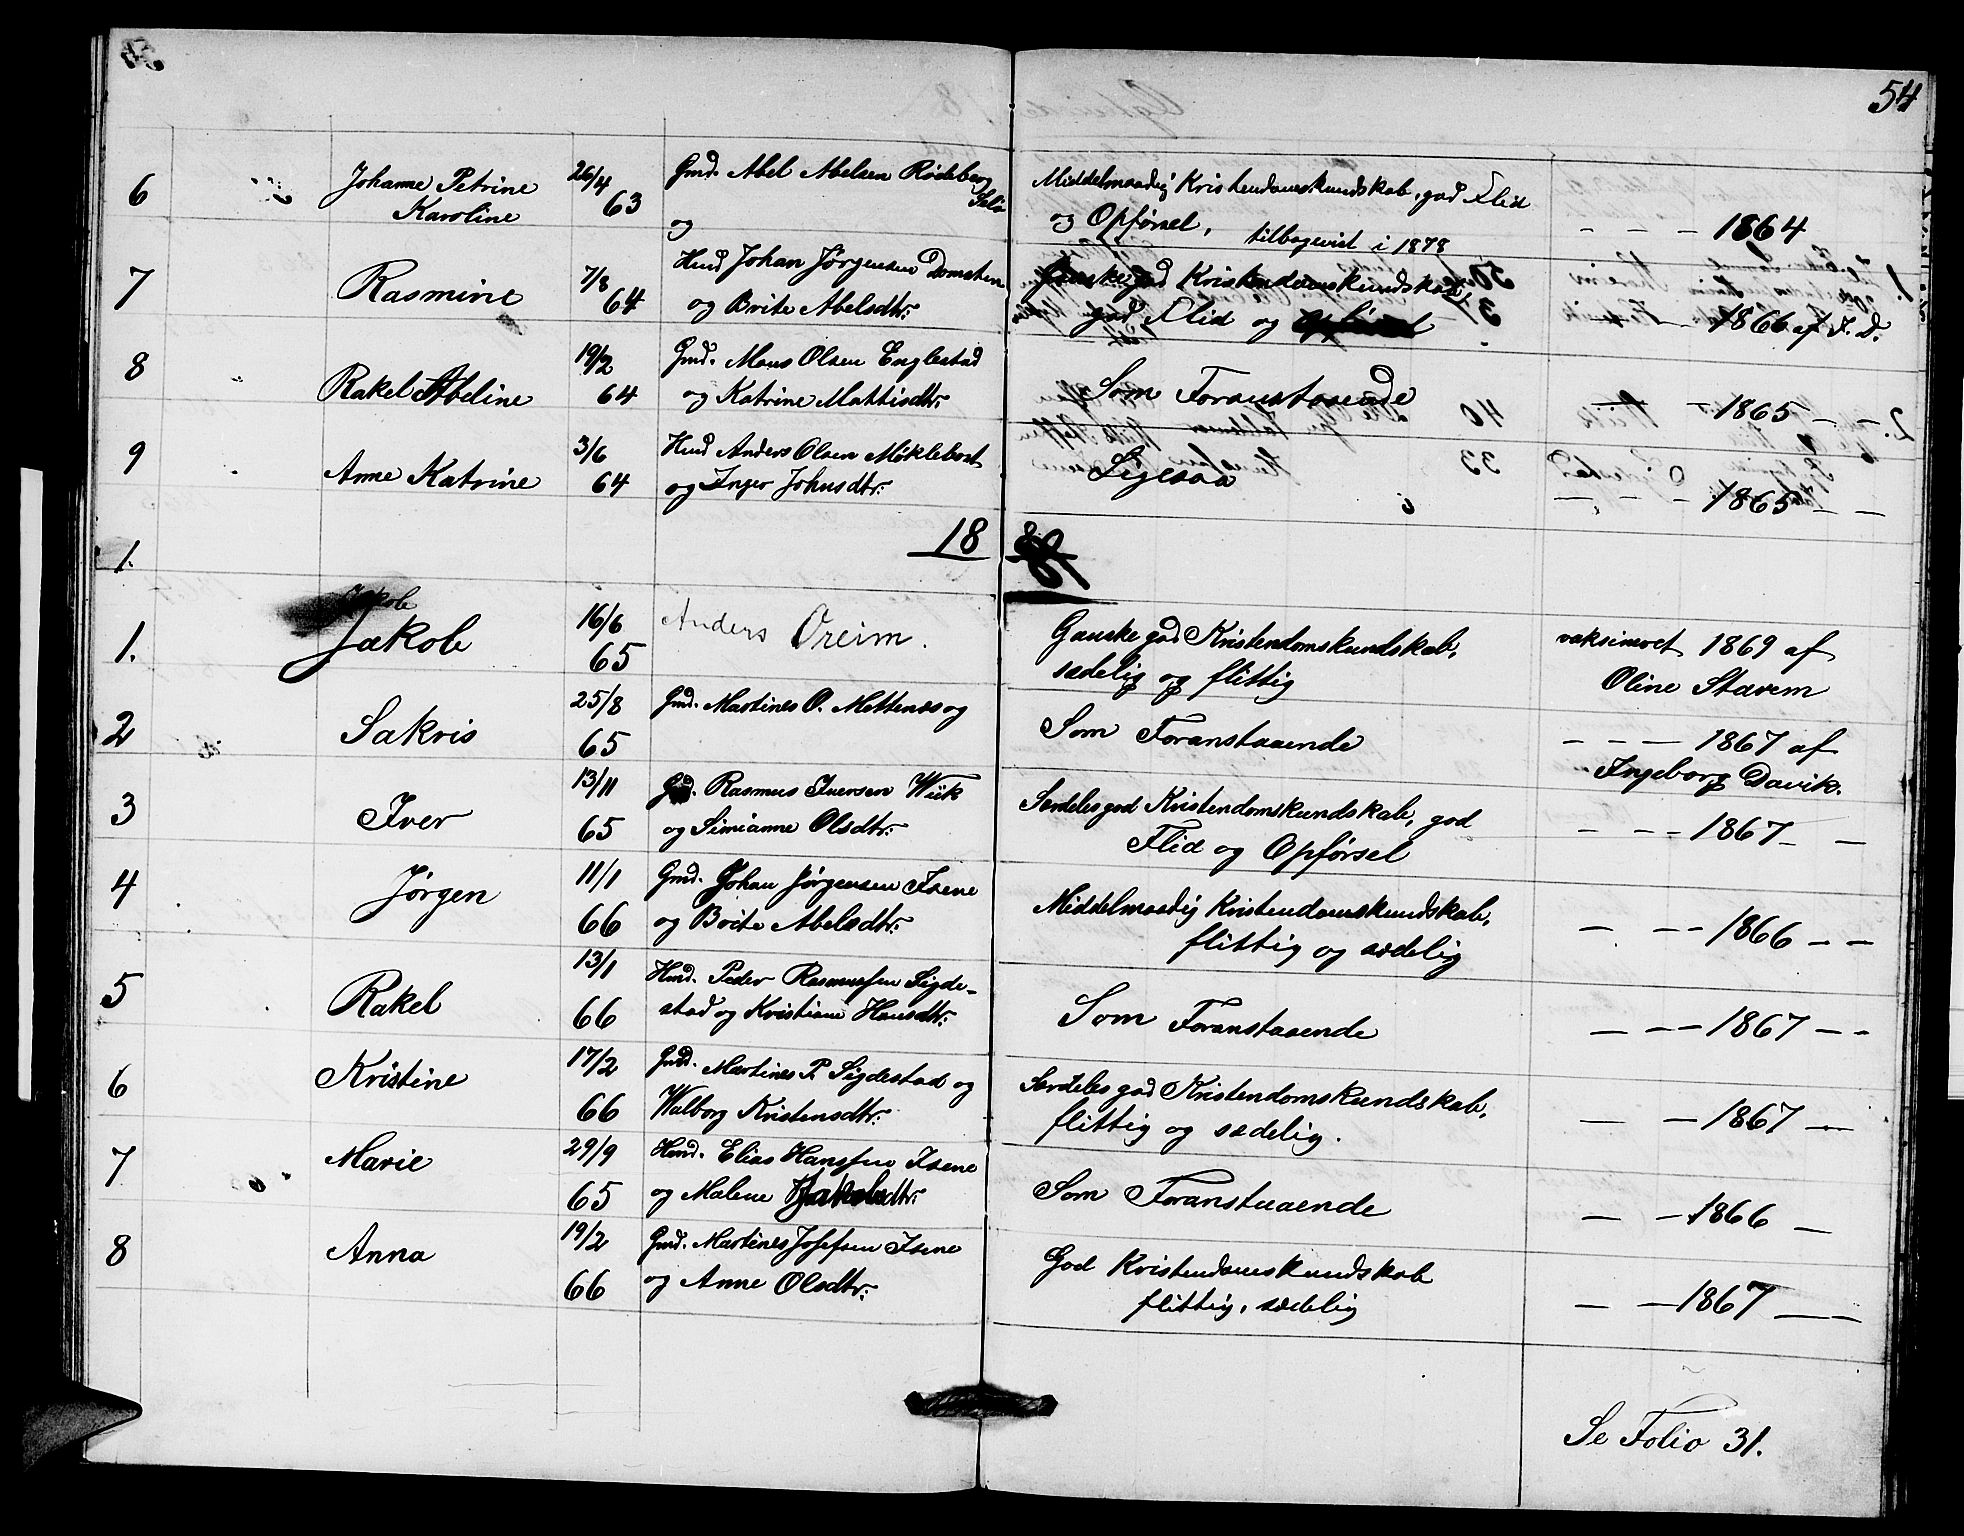 54
6 Johanne Petrine 26/4 Gmd. Abel Abelsen Rødeberg Middelmaadig Kristendomskundskab, god Flid
Karoline 63 og og Opførsel, tilbagevist i 1878 — — — 1864
7 Rasmine 7/8 Hmd Johan Jørgensen Domsten Ganske god Kristendomskundskab,
64 og Brite Abelsdtr: god Flid og — — — 1866 af I. D.
8 Rakel Abeline 19/2 Gmd. Mons Olsen Englestad Som Foranstaaende
64 og Katrine Mattisdtr: — 1865 — —
9 Anne Katrine 3/6 Hmd Anders Olsen Møklebost Ligesaa
64 og Inger Johnsdtr: — — — 1865 — —
1. 18 80
Jakob
1. Jakob 16/6 Anders Oreim. Ganske god Kristendomskundskab, vaksineret 1869 af
65 sædelig og flittig Oline Stavem
2 Sakris 25/8 Gmd. Martines O. Mettenes og Som Foranstaaende — — — 1867 af
65 Ingeborg Davik.
3 Iver 13/11 Gmd. Rasmus Iversen Wiik Særdeles god Kristendomskundskab, god
65 og Simianne Olsdtr: Flid og Opførsel — — — 1867 — —
4 Jørgen 11/1 Gmd. Johan Jørgensen Isene Middelmaadig Kristendomskundskab,
66 og Brite Abelsdtr: flittig og sædelig — — — 1866 — —
5 Rakel 13/1 Hmd. Peder Rasmussen Sigde-
66 stad og Kristiane Hansdtr: Som Foranstaaende — — — 1867 — —
6 Kristine 17/2 Gmd. Martines P. Sigdestad og Særdeles god Kristendomskundskab,
66 Walborg Kristensdtr: flittig og sædelig. — — 1867 —
7 Marie 29/9 Hmd. Elias Hanssen Isene
65 og Malene Jakobsdtr: Som Foranstaaende — — 1866 —
8 Anna 19/2 Gmd. Martines Josefsen Isene God Kristendomskundskab
66 og Anne Olsdtr: flittig, sædelig — — 1867 — —
Se Folio 31.